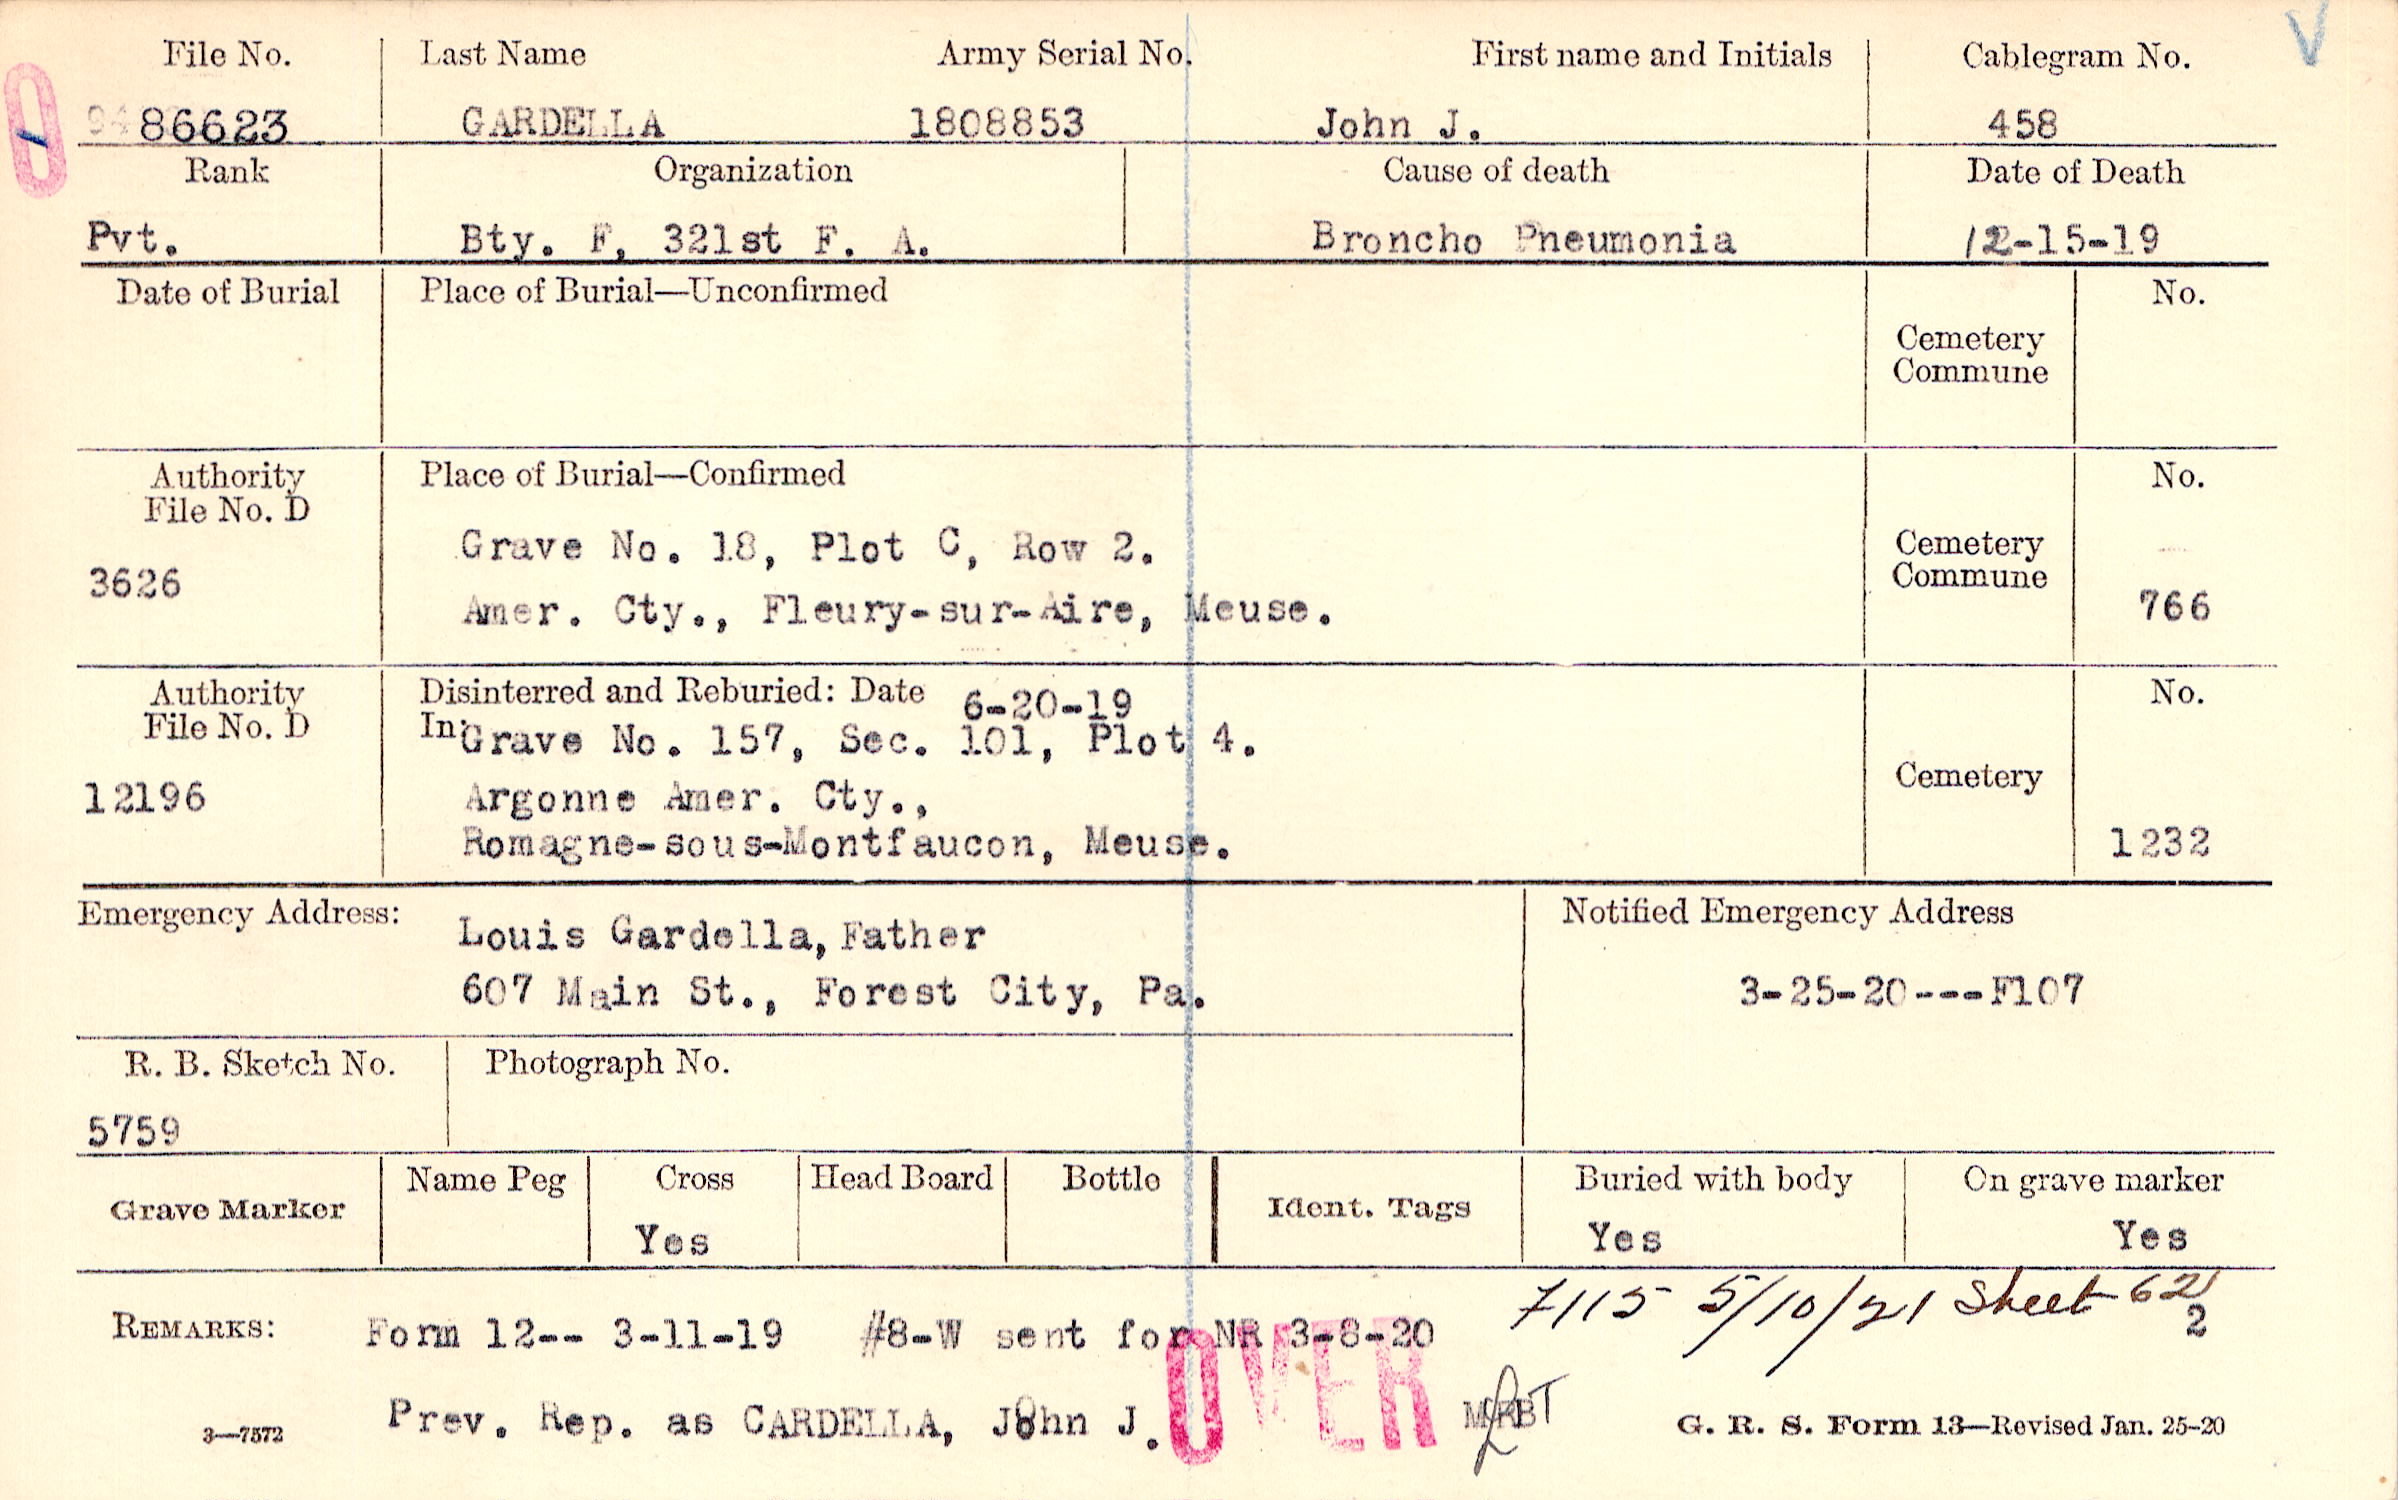 File No. Last Name Army Serial No. First name and Initials Cablegram No. V
86623 GARDELLA 1808853 John J. 458
Rank Organization Cause of death Date of Death
Pvt. Bty. F, 321st F. A. Broncho Pneumonia 12-15-19
Date of Burial Place of Burial—Unconfirmed No.
Cemetery
Commune
Authority Place of Burial—Confirmed No.
File No. D
Grave No. 18, Plot C, Row 2. Cemetery
3626 Commune
Amer. Cty., Fleury-sur-Aire, Meuse. 766
Authority Disinterred and Reburied: Date 6-20-19 No.
File No. D In: Grave No. 157, Sec. 101, Plot 4.
Cemetery
12196 Argonne Amer. Cty.,
Romagne-sous-Montfaucon, Meuse. 1232
Emergency Address: Louis Gardella, Father Notified Emergency Address
607 Main St., Forest City, Pa. 3-25-20---F107
R. B. Sketch No. Photograph No.
5759
Name Peg Cross Head Board Bottle Buried with body On grave marker
Grave Marker Ident. Tags
Yes Yes Yes
7115 5/10/21 Sheet 62
2
REMARKS: Form 12-- 3-11-19 #8-W sent for NR 3-8-20
OVER
Prev. Rep. as CARDELLA, John J.
3—7572 G. R. S. Form 13—Revised Jan. 25-20